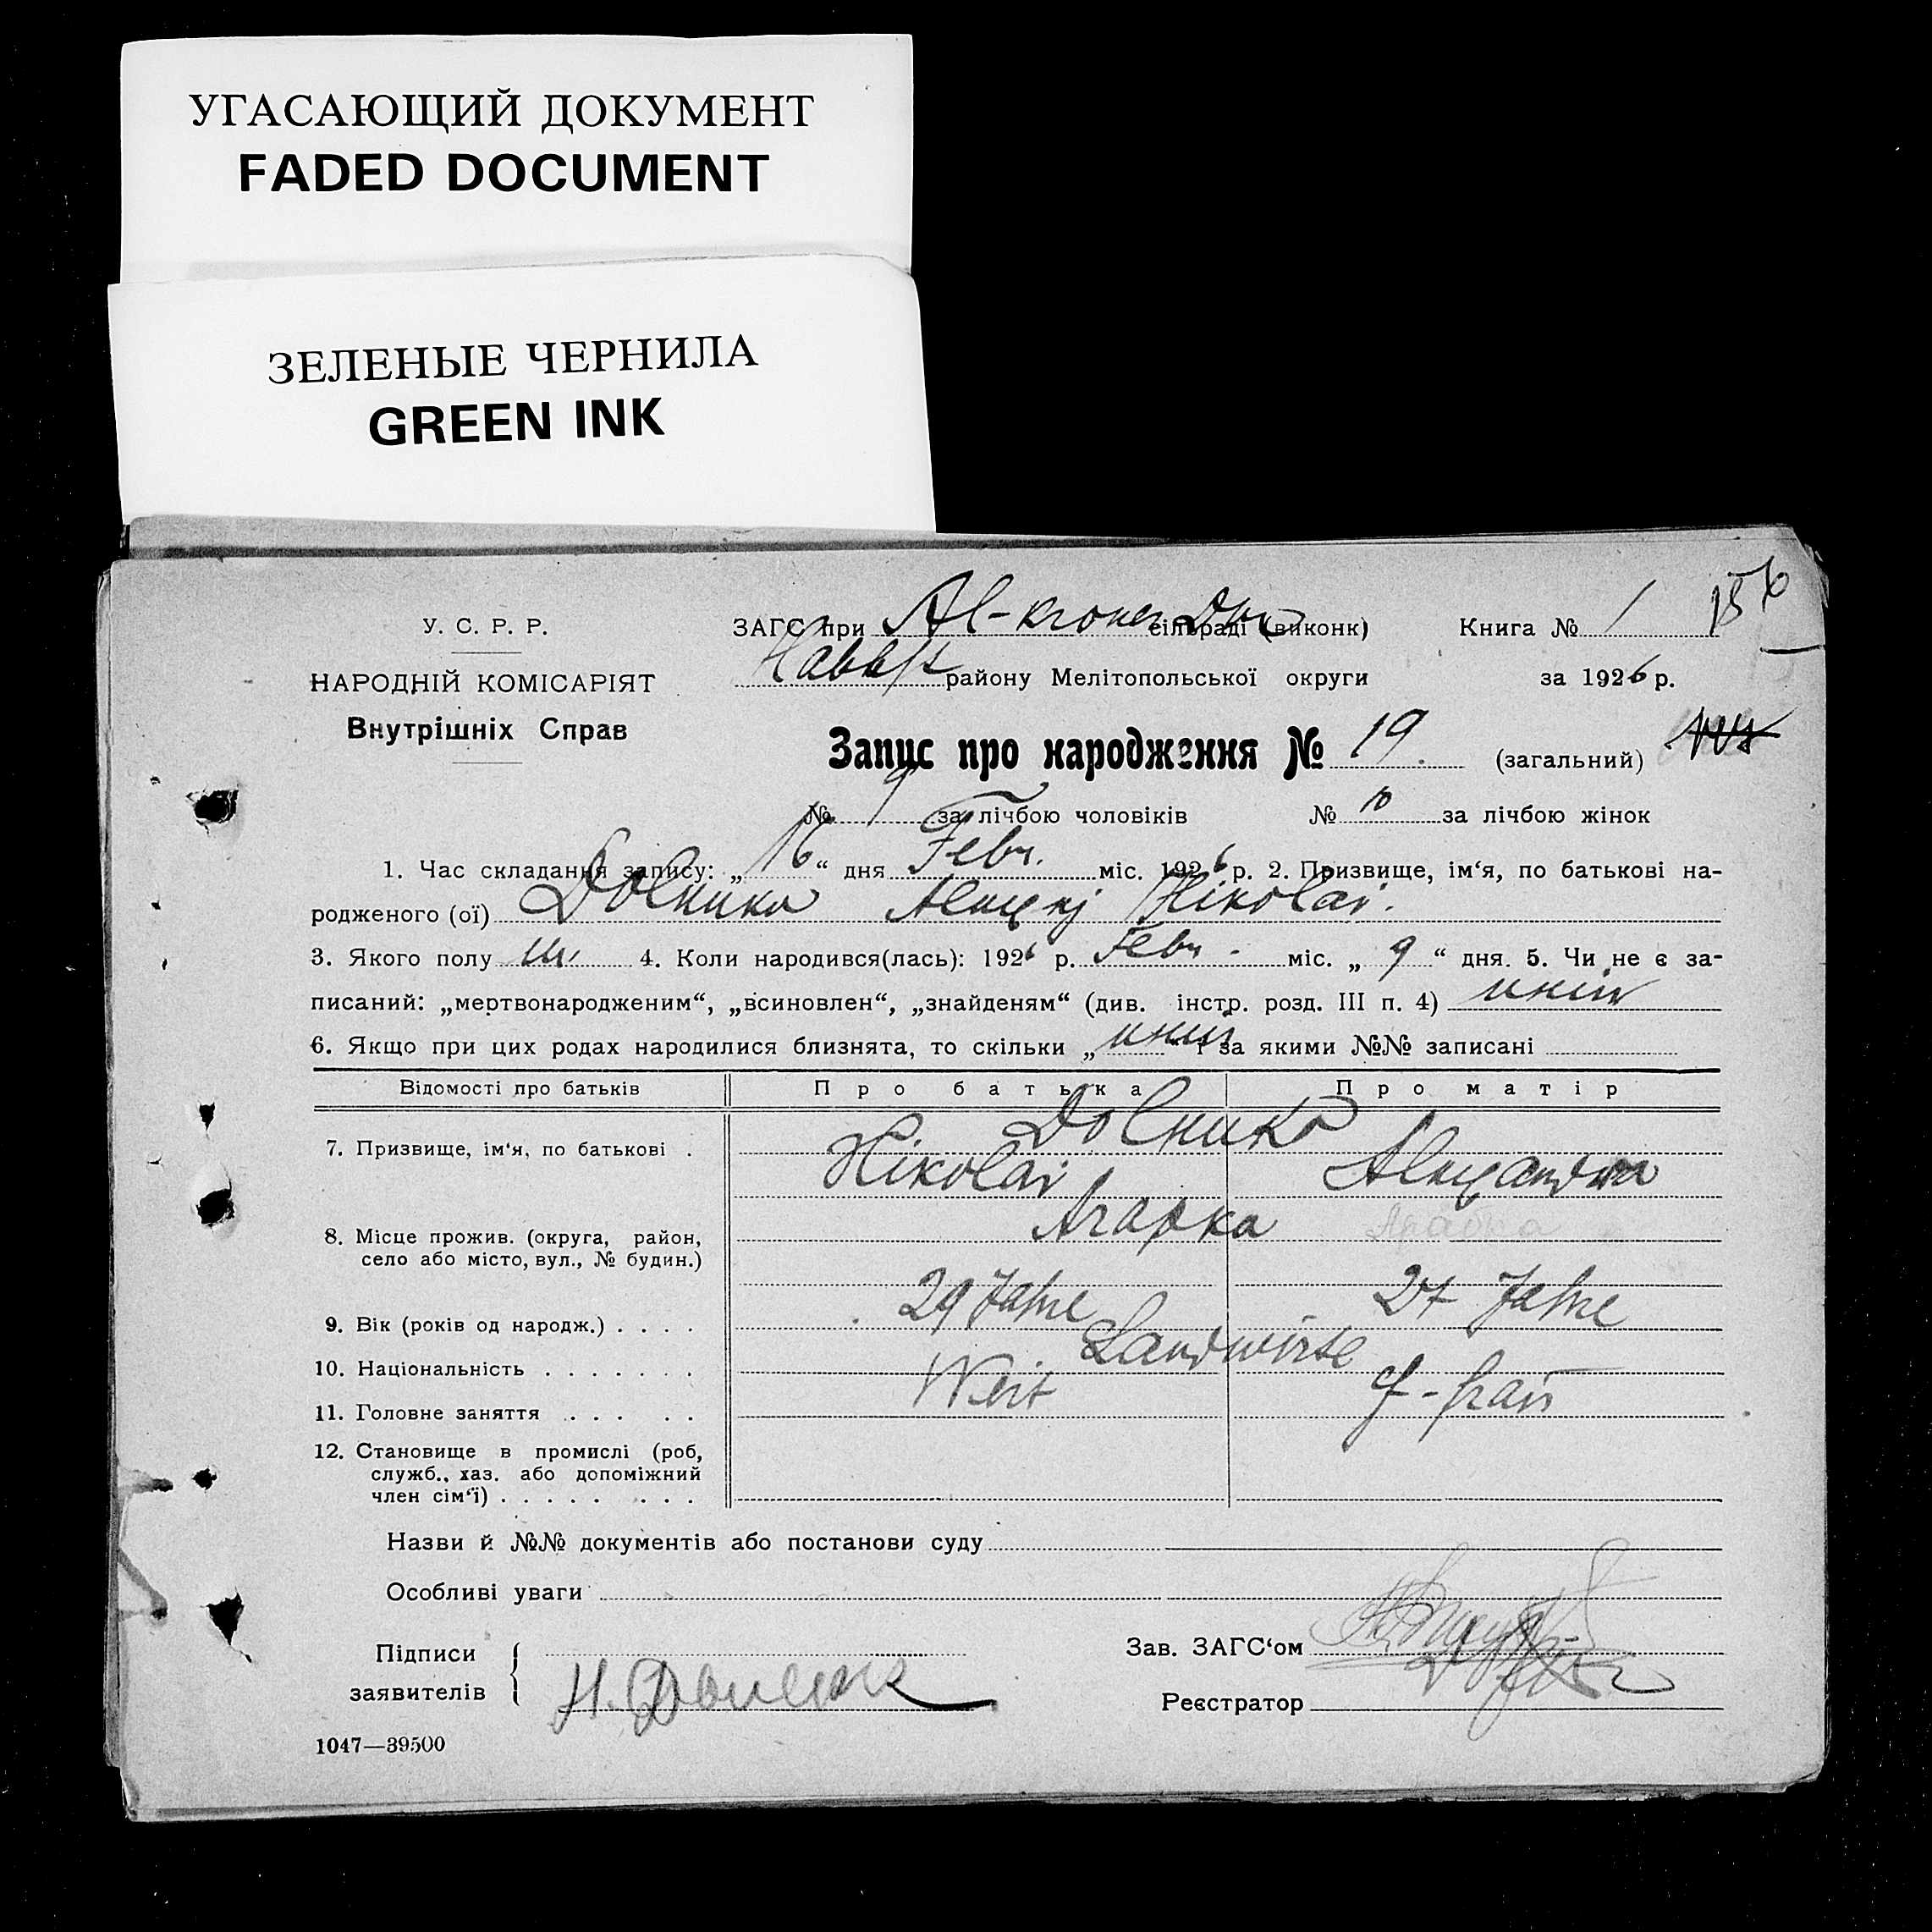 УГАСАЮЩИЙ ДОКУМЕНТ
FADED DOCUMENT
ЗЕЛЕНЫЕ ЧЕРНИЛА
GREEN INK
У. С. Р. Р.
НАРОДНІЙ КОМІСАРІЯТ
Внутрішніх Справ
ЗАГС при Al- сільраді (виконк) Книга № 1
району Мелітопольської округи за 1926 р.
Запис про народження № 19. (загальний)
№ 9 за лічбою чоловіків № 10 за лічбою жінок
1. Час складання запису: „16“ дня Febr. міс. 1926 р. 2. Призвище, ім‘я, по батькові на-
родженого (ої) Nikolai.
3. Якого полу 4. Коли народився(лась): 1926 р. Febr. міс. „ 9 “ дня. 5. Чи не є за-
писаний: „мертвонародженим“, „всиновлен“, „знайденям“ (див. інстр. розд. III п. 4)
6. Якщо при цих родах народилися близнята, то скільки „ “ і за якими №№ записані
Відомості про батьків Про батька Про матір
7. Призвище, ім‘я, по батькові .
Nikolai Alexandra
8. Місце прожив. (округа, район,
село або місто, вул., № будин.)
9. Вік (років од народж.) . . . . 29 Jahre 27 Jahre
10. Національність . . . . . . . Landwirte
11. Головне заняття . . . . . Wirt
12. Становище в промислі (роб,
служб., хаз. або допоміжний
член сім‘ї) . . . . . . . .
Назви й №№ документів або постанови суду
Особливі уваги
Підписи
заявителів
Зав. ЗАГС‘ом
Реєстратор
1047—39500